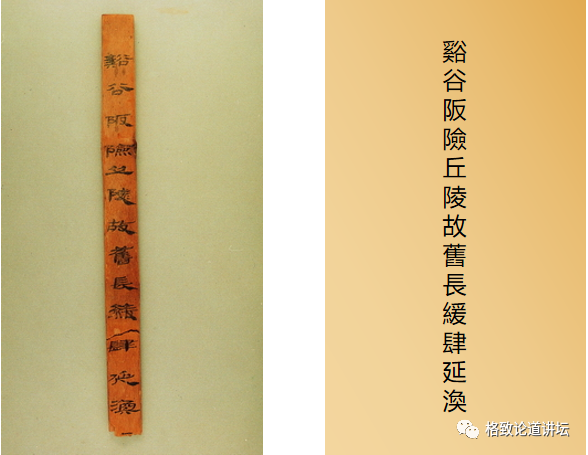 谿谷阪險丘陵故舊長緩肆延渙
谿谷阪險丘陵故舊長緩肆延渙
格致论道讲坛